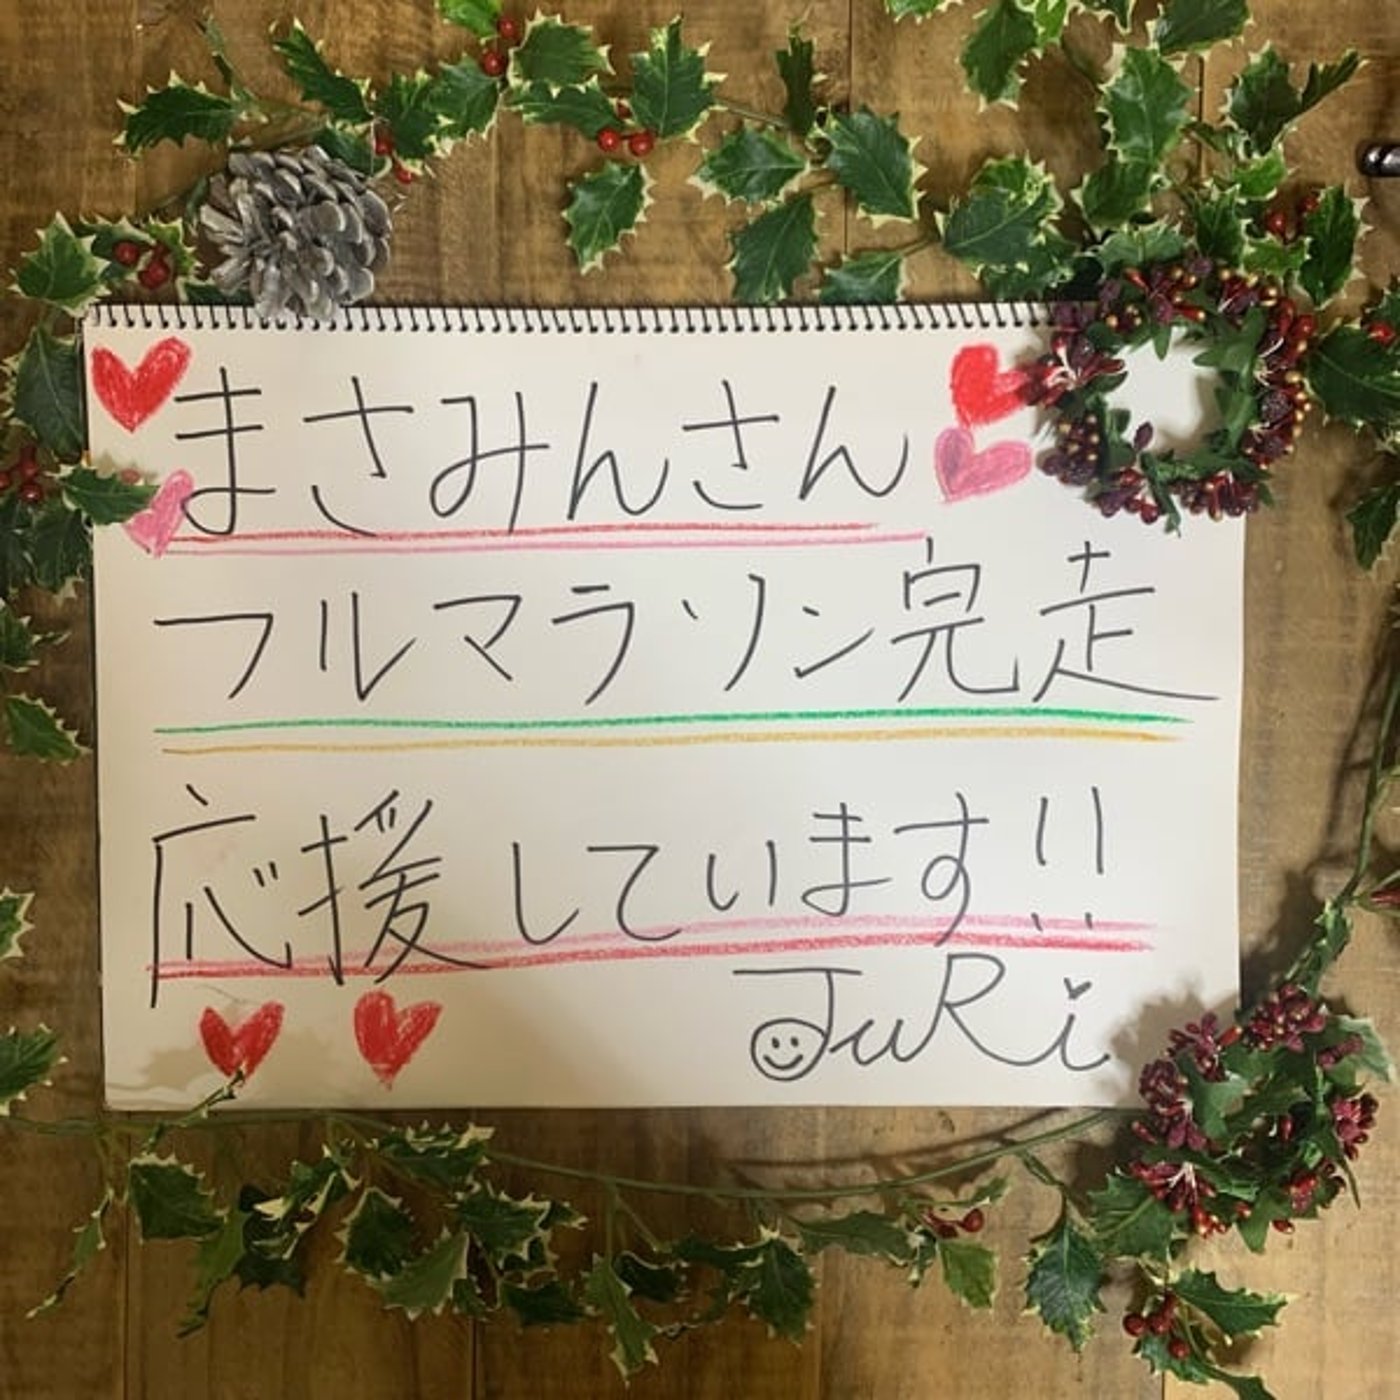 まさみんさん
フルマラソン完走
応援しています!!
JuRi